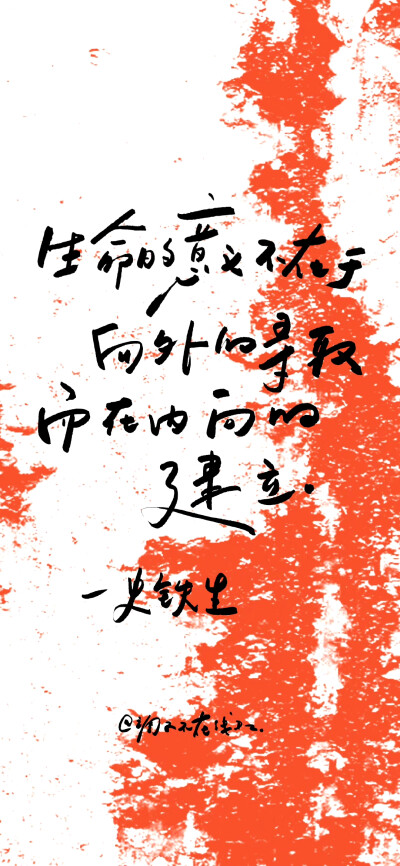 生命的意义不在于
向外的寻取
而在内向的
建立.
一史铁生